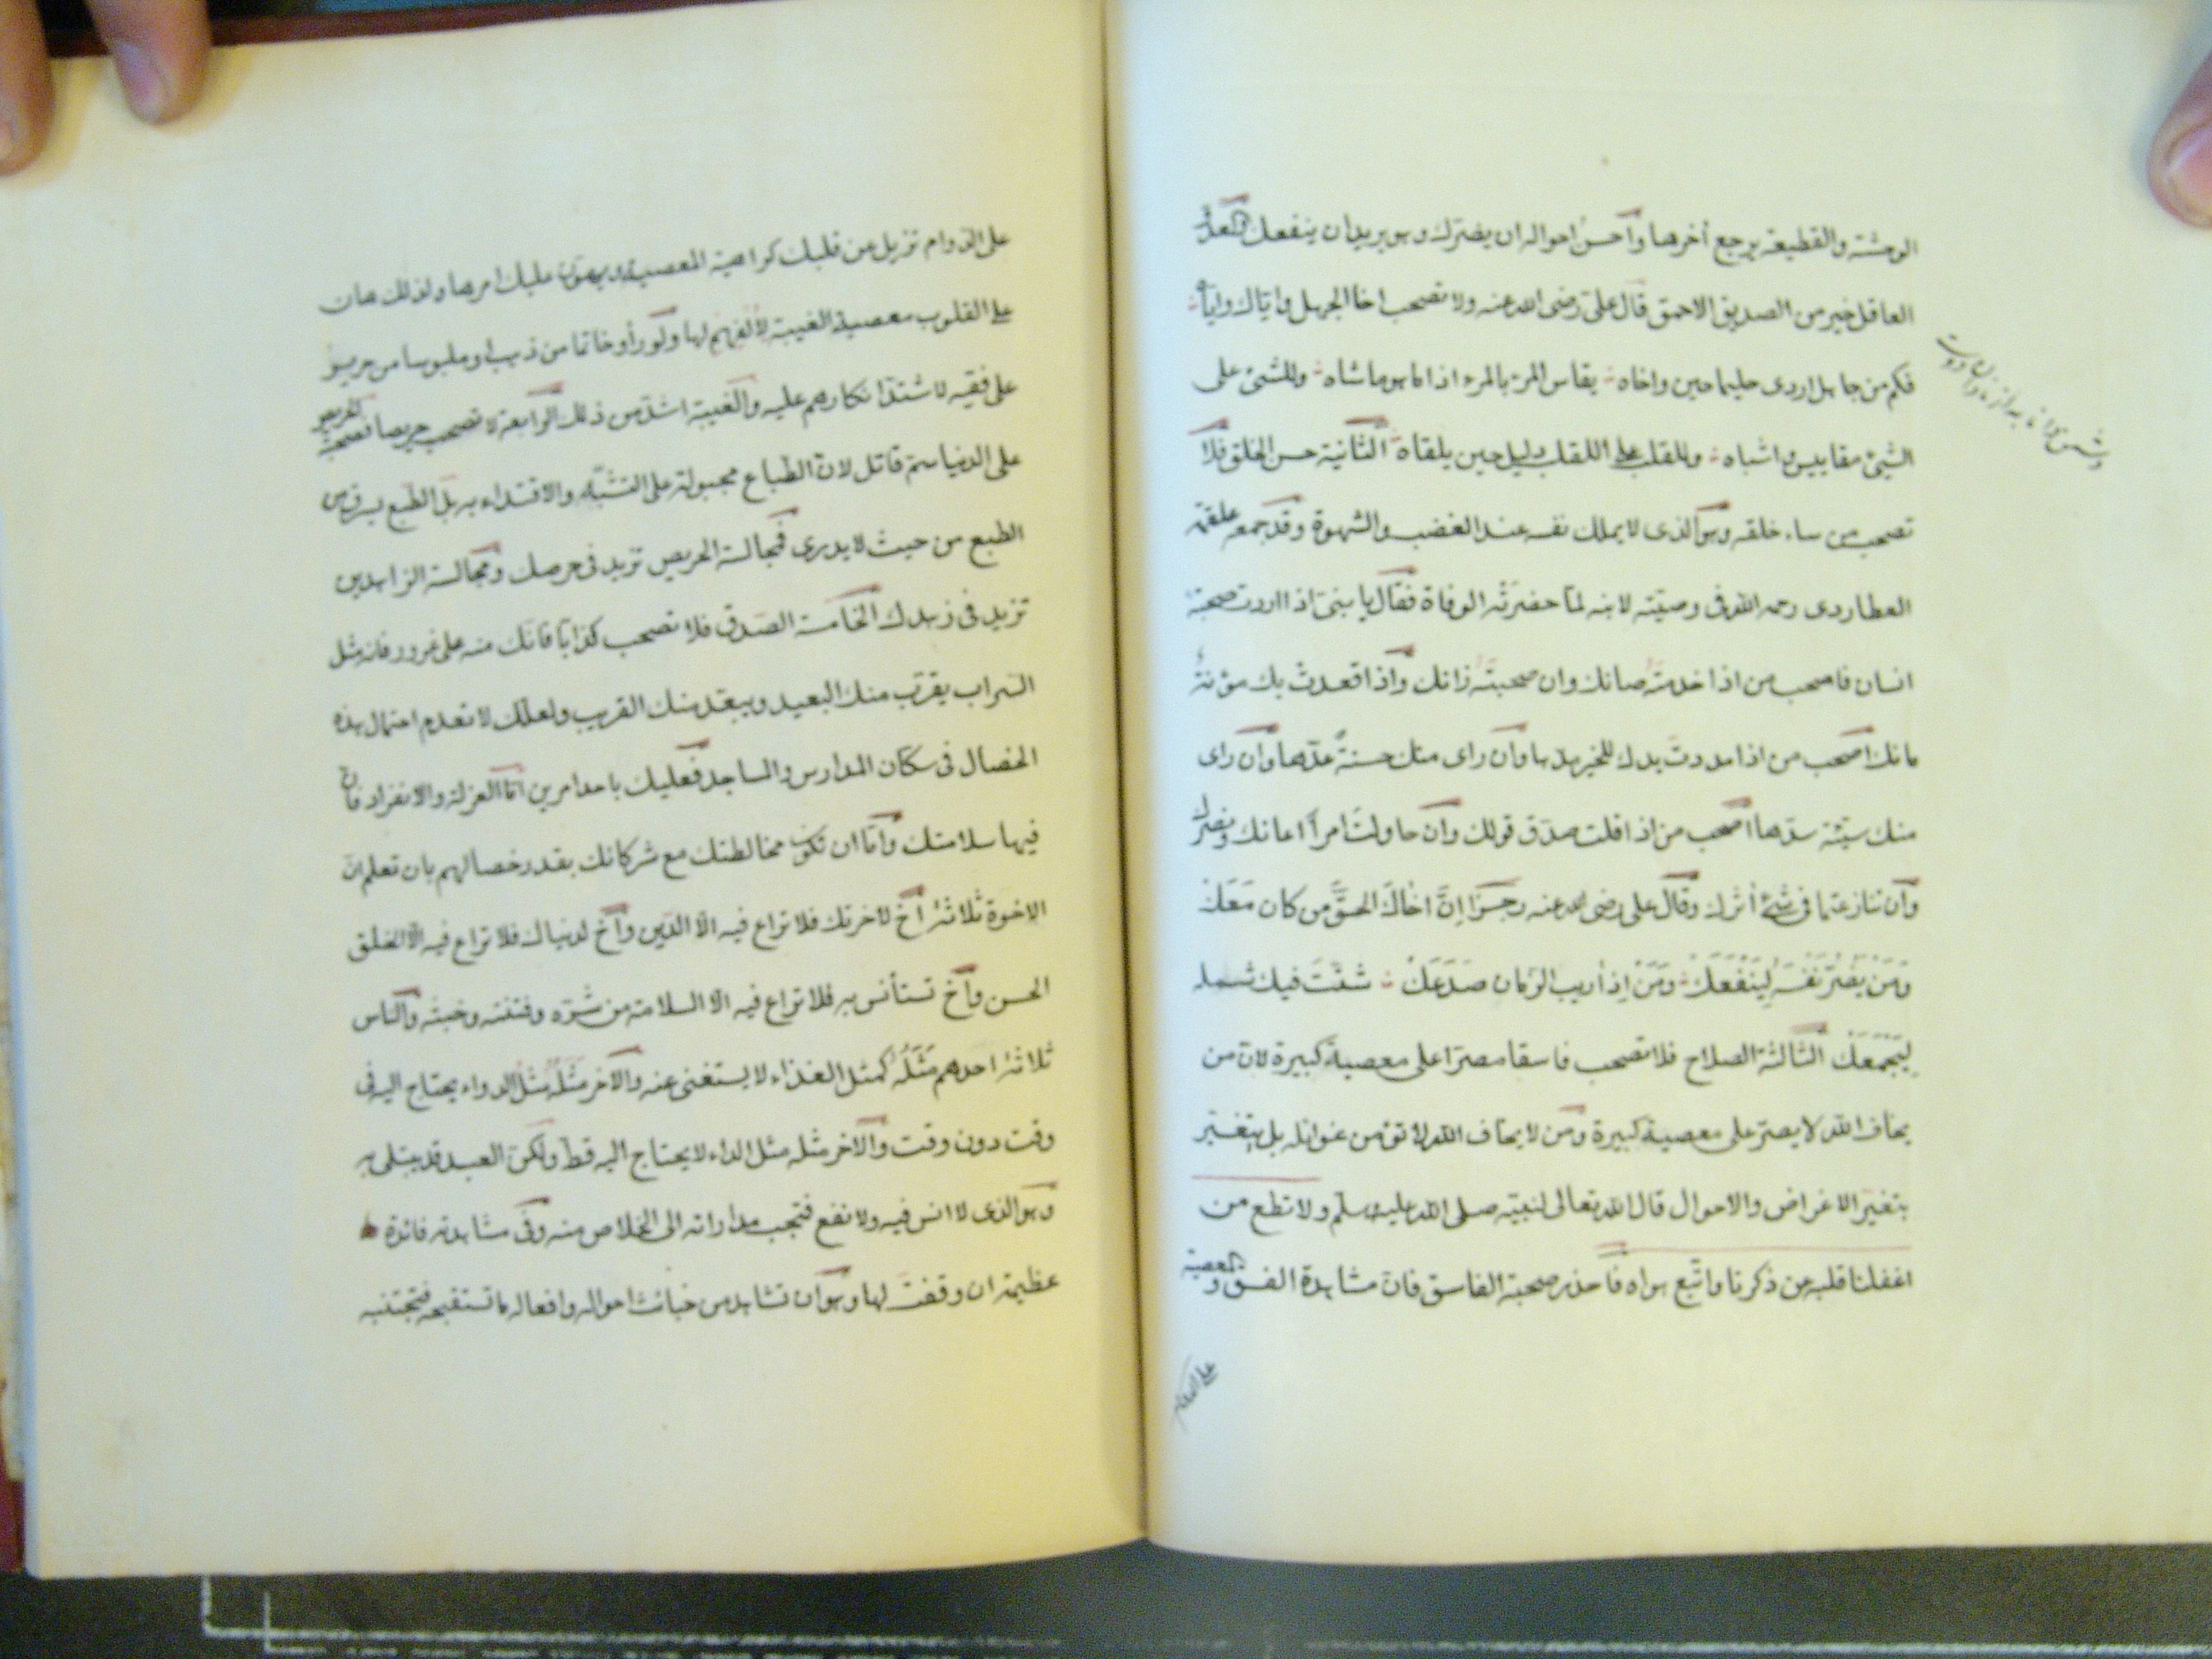 الوحشة والقطيعة يرجع أخرها وأحسن احواله ان يضرك وهو يريد ان ينفعك والعدو
العاقل خير من الصديق الاحمق قال على رضى الله عنه ولا تصحب اخا الجهل واياك واياه
فكم من جاهل اردى حليما حين واخاه يقاس المرء بالمرء اذا ما هو ماشاه وللشئ على
الشئ مقاييس واشباه وللقلب على اللقلب دليل حين يلقاه الثانية حسن الخلق فلا
تصحب من ساء خلقه وهو الذى لا يملك نفسه عند الغضب والشهوة وقد جمعه علقمة
العطاردى رحمه الله فى وصيّته لابنه لمّا حضرته الوفاة فقال يا بنىّ اذا اردت صحبة
انسان فاصحب من اذا خدمته صانك وان صحبته زانك واذا قعدت بك مؤنة
مانك اصحب من اذا مددت يدك للخير مدّها وان راى منك حسنة عدّها وان راى
منك سيّئة سدّها اصحب من اذا قلت صدّق قولك وان حاولت امراً اعانك ونصرك
وان تنازعتما فى شئ أثرك وقال على رضى الله عنه رجزا إنّ اخاك الحقّ من كان معك
ومن يضرّ نفسه لينفعك ومن إذا ريب الزمان صدعك شتّت فيك شمله
ليجمعك الثالثة الصلاح فلا تصحب فاسقا مصرّا على معصية كبيرة لان من
يخاف الله لا يصرّ على معصية كبيرة ومن لا يخاف الله لا تؤمن غوائله بل يتغيّر
بتغيّر الاغراض والاحوال قال الله تعالى لنبيّه صلى الله عليه وسلّم ولا تطع من
اغفلنا قلبه عن ذكرنا واتّبع هواه فاحذر صحبة الفاسق فانّ مشاهدة الفسق والمعصية
على الدوام
على الدوام تزيل عن قلبك كراهية المعصية ويهوّن عليك امرها ولذلك هان
على القلوب معصية الغيبة لألفهم لها ولو رأوا خاتما من ذهب او ملبوسا من حرير
على فقيه لاشتدّ انكارهم عليه والغيبة اشدّ من ذلك الرابعة لا تصحب حريصا فصحبة الحريص
على الدنيا سمّ قاتل لانّ الطباع مجبولة على التشبّه والاقتداء به بل الطبع يسرق من
الطبع من حيث لا يدرى فمجالسة الحريص تزيد فى حرصك ومجالسة الزاهدين
تزيد فى زهدك الخامسة الصدق فلا تصحب كذابا فانّك منه على غرور فانه مثل
السراب يقرّب منك البعيد ويبعّد منك القريب ولعلّك لا تعدم احتمال هذه
الخصال فى سكّان المدارس والمساجد فعليك باحد امرين امّا العزلة والانفراد فانّ
فيها سلامتك وامّا ان تكون مخالطتك مع شركائك بقدر خصالهم بان تعلم انّ
الاخوة ثلاثة أخ لاخرتك فلا تراع فيه الّا الدّين وأخ لدنياك فلا تراع فيه الّا الخلق
الحسن وأخ تستأنس به فلا تراع فيه الّا السلامة من شرّه وفتنته وخبثه والناس
ثلاثة احدهم مثله كمثل الغذاء لا يستغنى عنه والآخر مثله مثل الدواء يحتاج اليه فى
وقت دون وقت والآخر مثله مثل الداء لا يحتاج اليه قطّ ولكنّ العبد قد يبتلى به
وهو الذى لا انس فيه ولا نفع فتجب مداراته الى الخلاص منه وفى مشاهدته فائدة
عظيمة ان وقفت لها وهو ان تشاهد من خبائث احواله وافعاله ما تستقبحه فتجتنبه